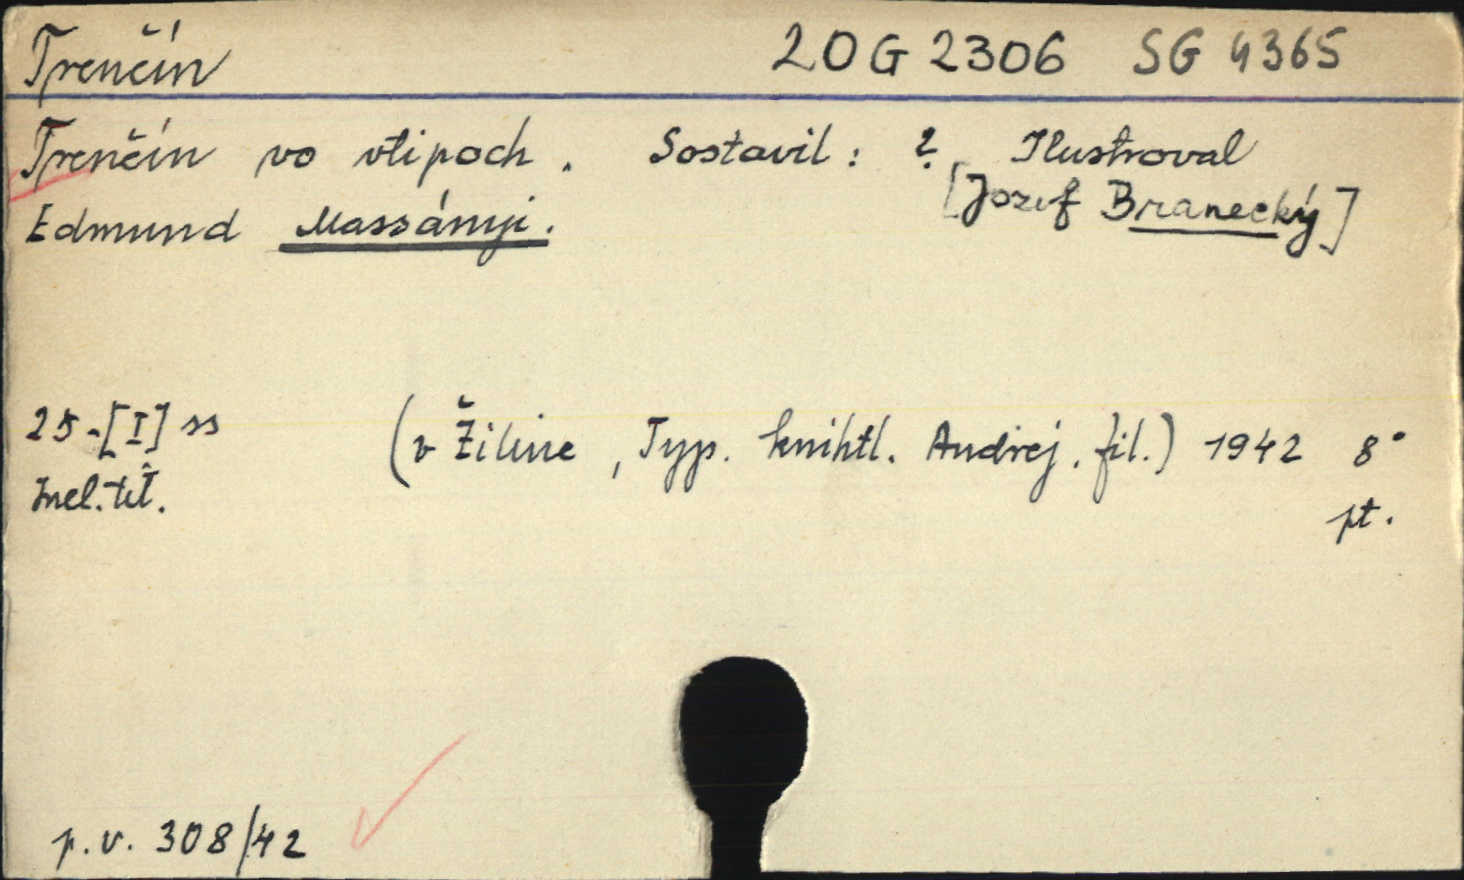 Trenčín 20 G 2306 SG 4365
Trenčín vo vtipoch. Sostavil: ? Ilustroval
[Jozef Branecký]
Edmund Massányi.
25-[I] ss (v Žiline, Typ. knihtl. Andrej. fil.) 1942 8°
Incl. tit. pt.
p.v. 308/42